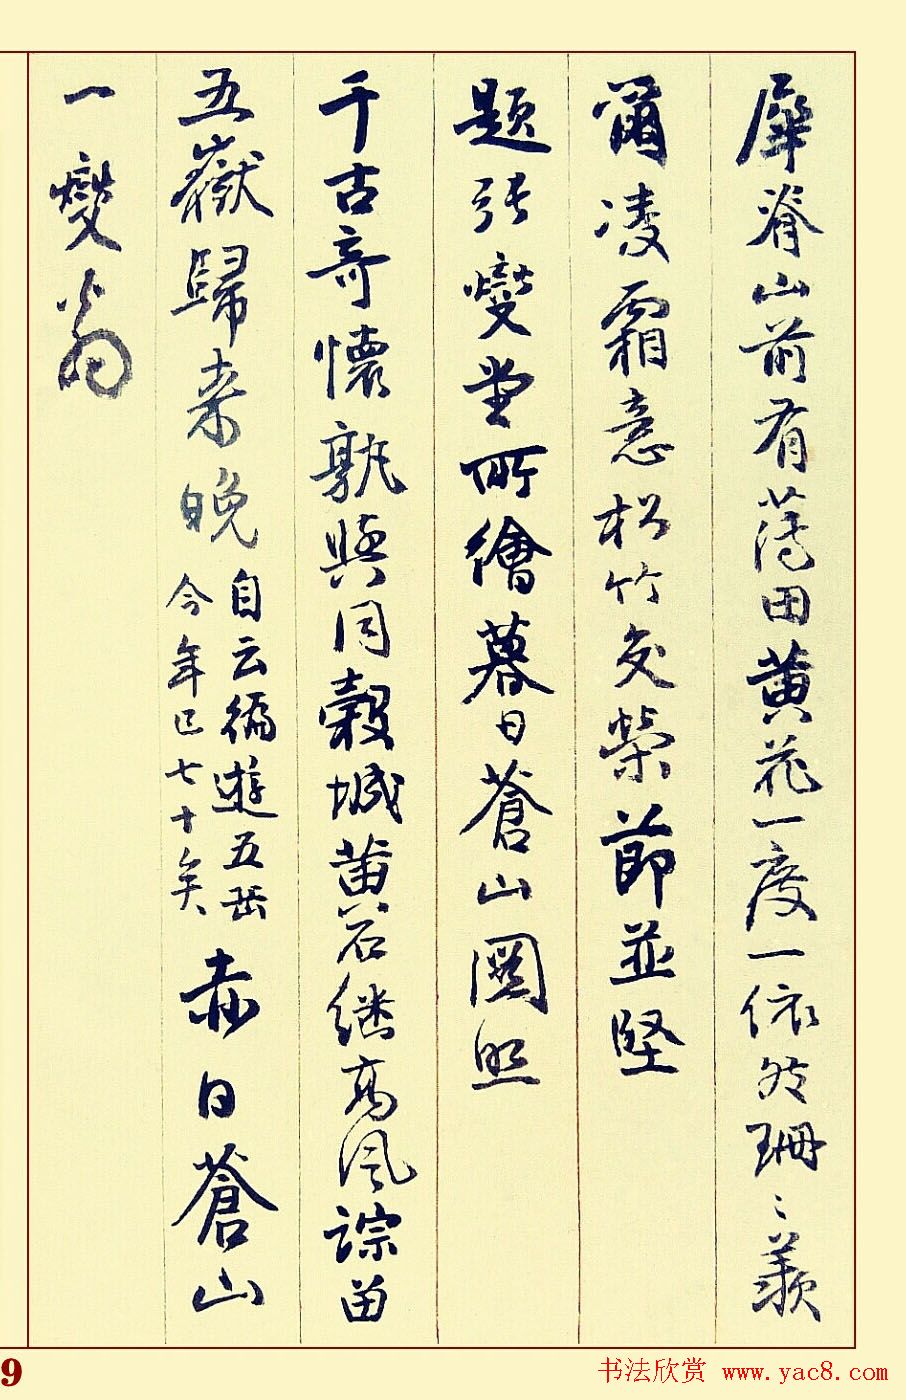 犀脊山前有薄田黃花一度一依然珊〻羨
爾凌霜意松竹交榮節並堅
題張燮堂所繪暮日蒼山圖照
千古奇懷孰與同穀城黃石繼高風踪留
五嶽歸来晚自云徧遊五岳今年已七十矣赤日蒼山
一燮翁
9
书法欣赏 www.yac8.com